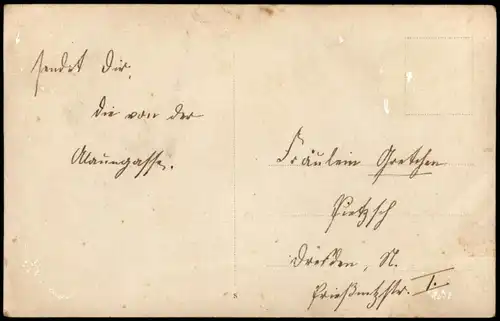 sendet Dir,
die von der
Alaungasse.
Fräulein Gretchen
Pietzsch
Dresden, N.
Prießnitzstr. I.